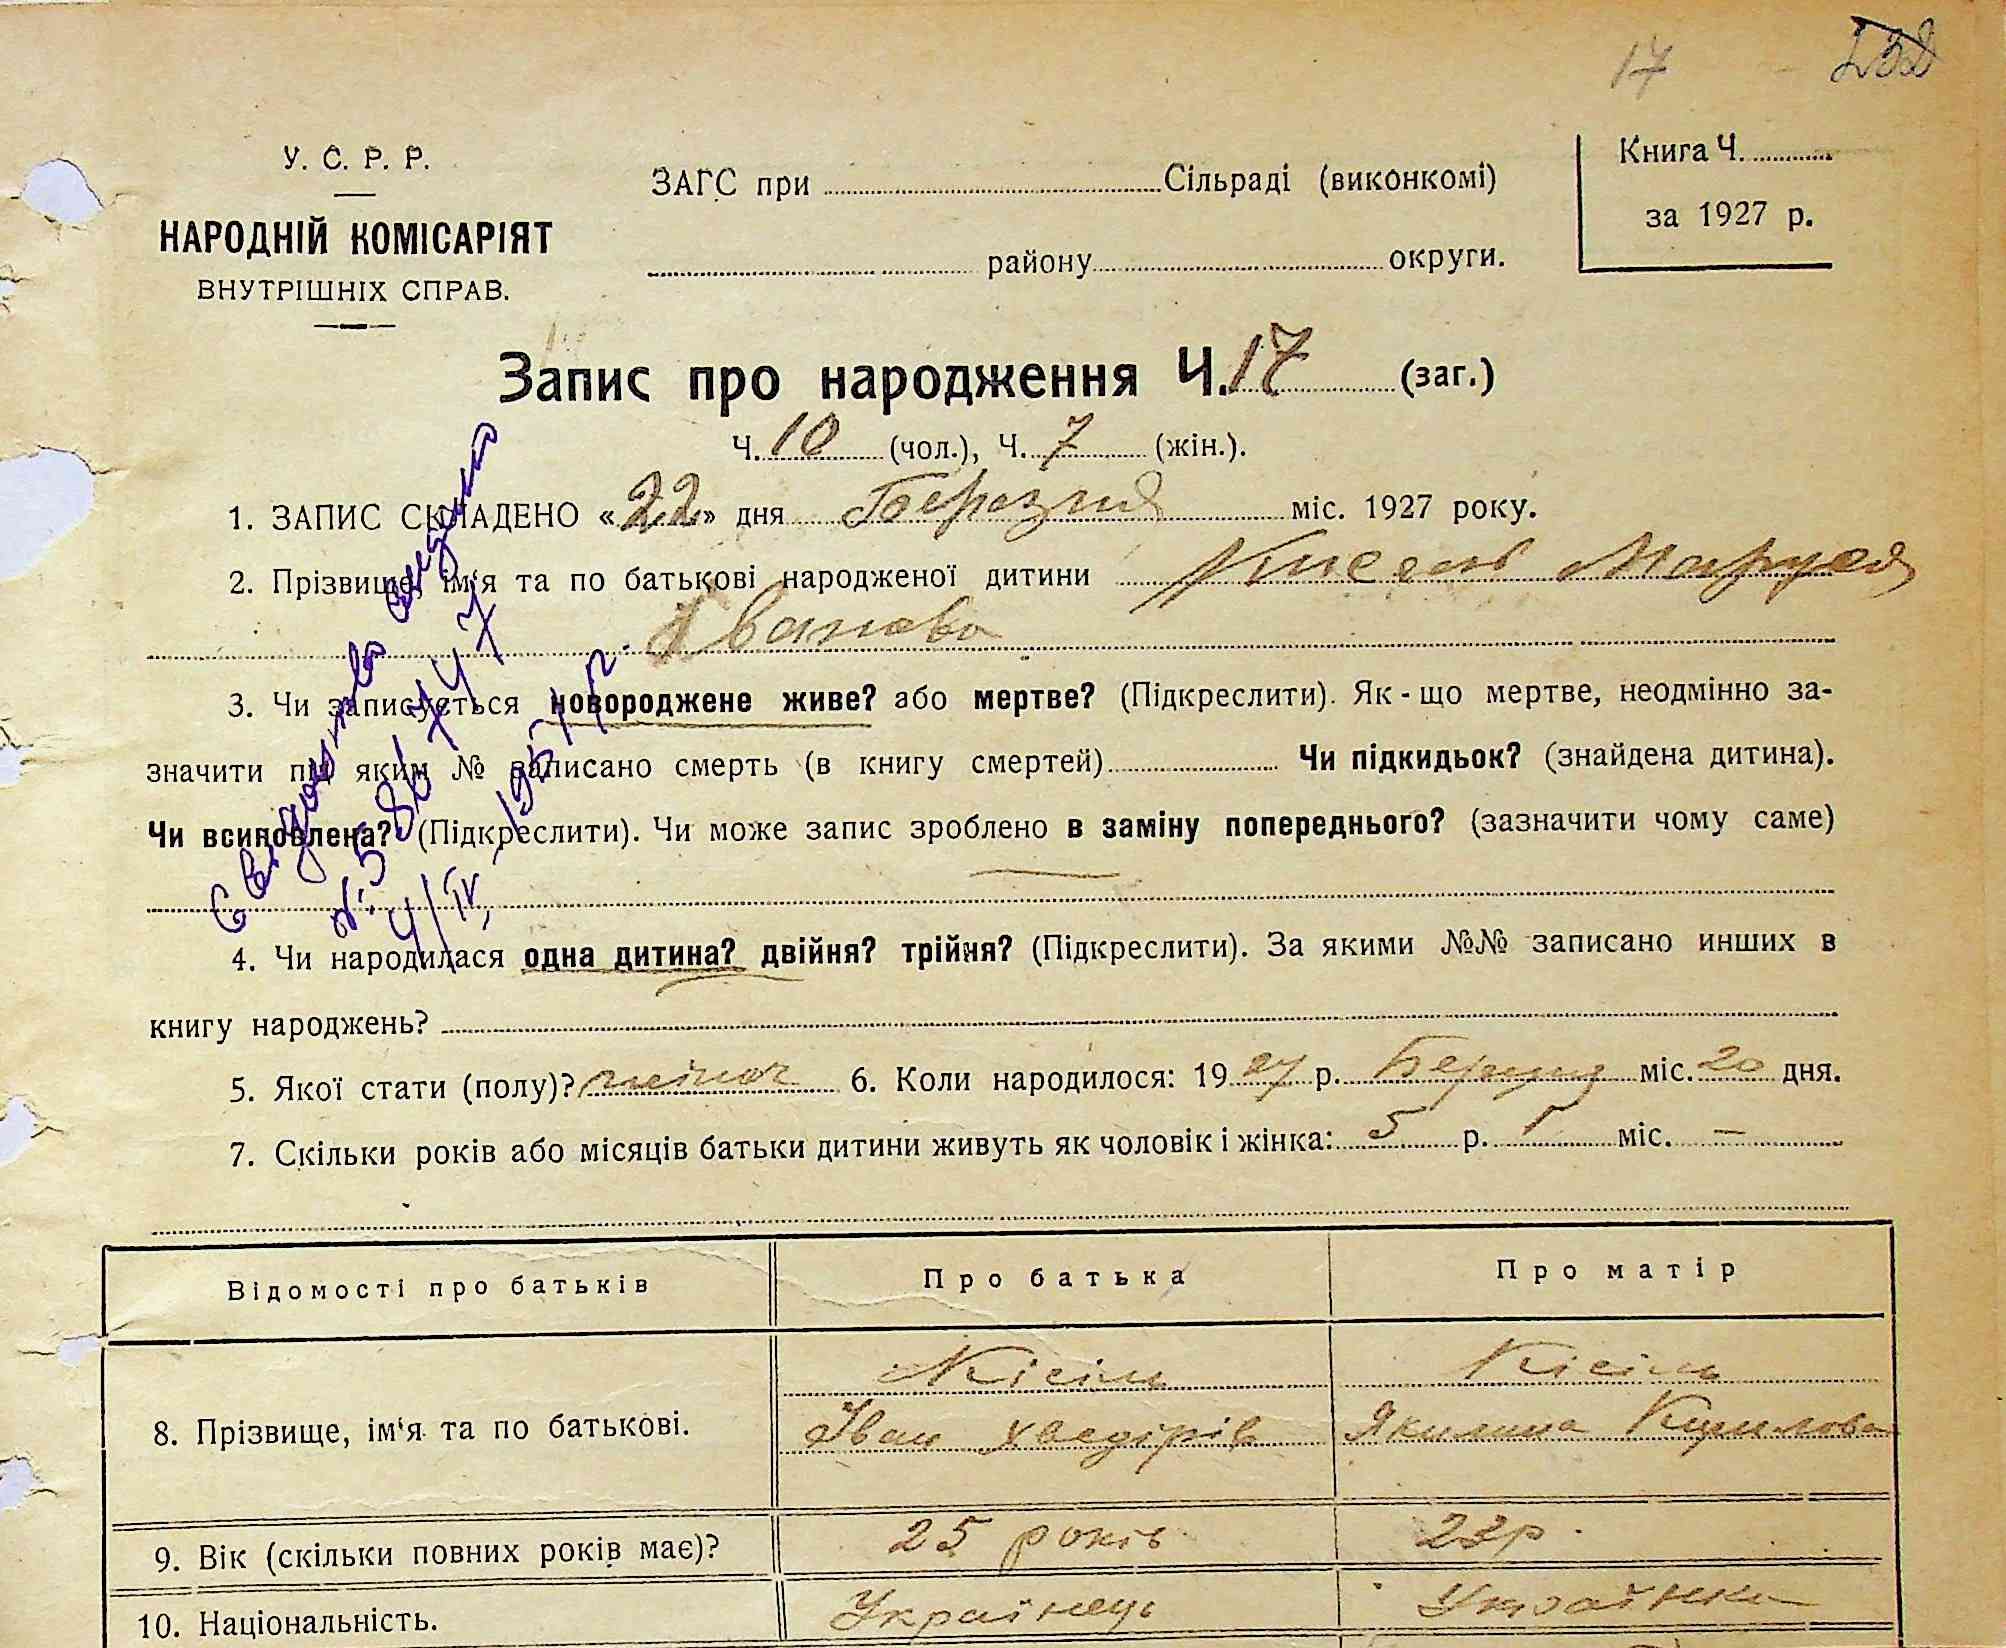 17
У. С. Р. Р.
НАРОДНІЙ КОМІСАРІЯТ
ВНУТРІШНІХ СПРАВ.
ЗАГС при Сільраді (виконкомі)
району округи.
Книга Ч.
за 1927 р.
Запис про народження Ч. 17 (заг.)
Ч. 10 (чол.), Ч. 7 (жін.).
1. ЗАПИС СКЛАДЕНО «22» дня Березня міс. 1927 року.
2. Прізвище, ім'я та по батькові народженої дитини Кисель Маруся
Іванова
3. Чи записується новороджене живе? або мертве? (Підкреслити). Як-що мертве, неодмінно за-
значити під яким № записано смерть (в книгу смертей) Чи підкидьок? (знайдена дитина).
Чи всиновлена? (Підкреслити). Чи може запис зроблено в заміну попереднього? (зазначити чому саме)
4. Чи народилася одна дитина? двійня? трійня? (Підкреслити). За якими №№ записано инших в
книгу народжень?
5. Якої стати (полу)? жіноч 6. Коли народилося: 1927 р. міс. 20 дня.
7. Скільки років або місяців батьки дитини живуть як чоловік і жінка: 5 р. міс. —
Відомості про батьків Про батька Про матір
Кісіль Кісіль
8. Прізвище, ім'я та по батькові. Іван Хведірів Якилина Кирилова
9. Вік (скільки повних років має)? 25 років 23р.
10. Національність. Українець Українка